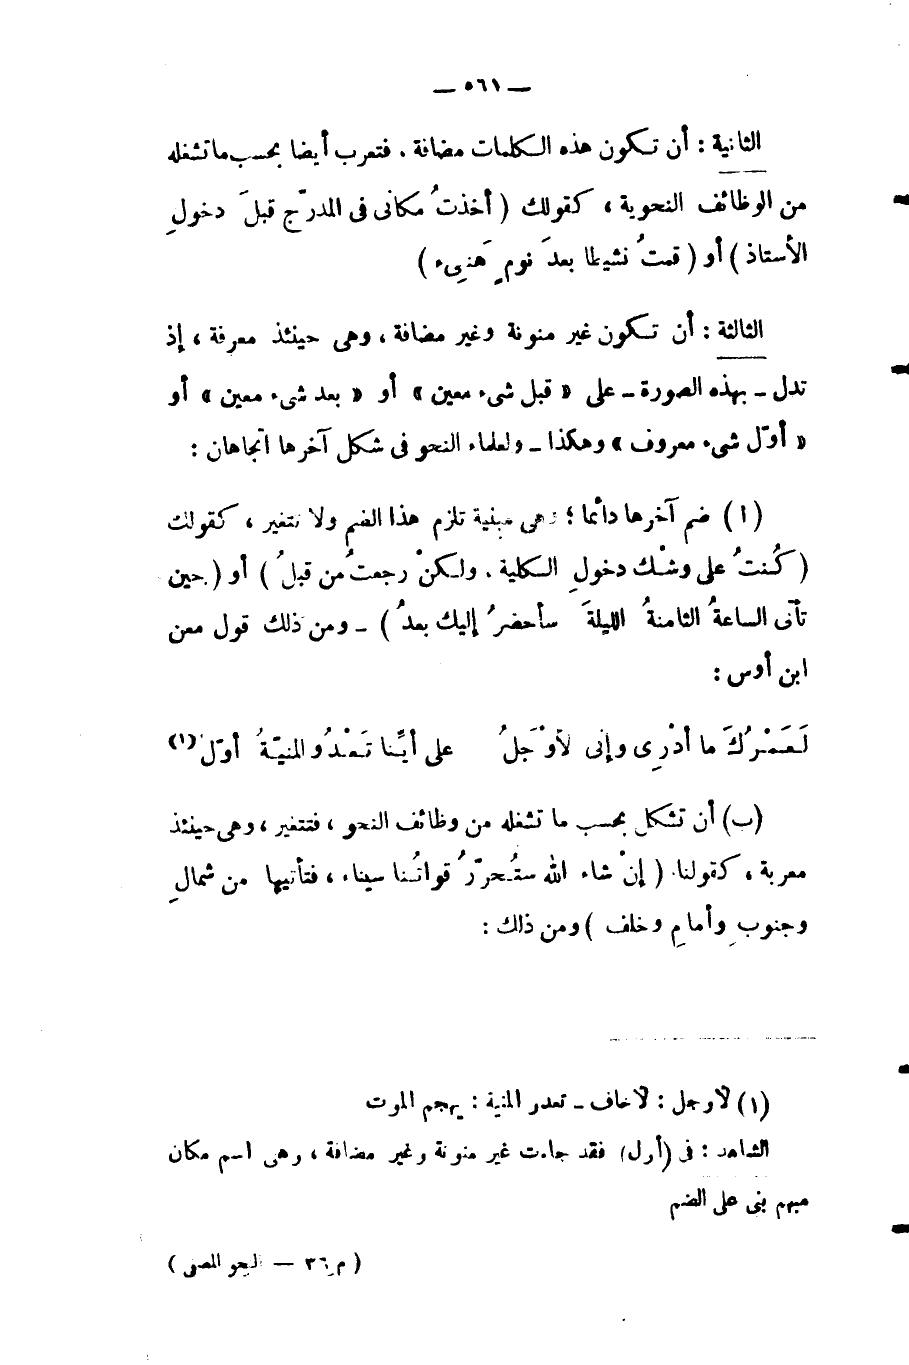 — ٥٦١ —
الثانية : أن تكون هذه الكلمات مضافة . فتعرب أيضا بحسب ما تشغله
من الوظائف النحوية ، كقولك ( أخذتُ مكانى فى المدرّج قبلَ دخولِ
الأستاذ ) أو ( قمتُ نشيطا بعدَ نومٍ هَنِىء )
الثالثة : أن تكون غير منونة وغير مضافة ، وهى حينئذ معرفة ، إذ
تدل ـ بهذه الصورة ـ على « قبل شىء معين » أو « بعد شىء معين » أو
« أوّل شىء معروف » وهكذا ـ ولعلماء النحو فى شكل آخرها اتجاهان :
( ا ) ضم آخرها دائما ؛ فهى مبنية تلزم هذا الضم ولا تتغير ، كقولك
( كُنتُ على وشْك دخولِ الكلية . ولكنْ رجعتُ من قبلُ ) أو ( حين
تأتى الساعةُ الثامنةُ الليلةَ سأحضرُ إليك بعدُ ) ـ ومن ذلك قول معن
ابن أوس :
لَعَمْرُكَ ما أدْرِى وإنى لأوْجَلُ على أيِّنا تَعْدُو المنيّةُ أوّلُ (١)
(ب) أن تشكل بحسب ما تشغله من وظائف النحو ، فتتغير ، وهى حينئذ
معربة ، كقولنا ( إنْ شاء الله ستُحرّرُ قواتُنا سيناء ، فتأتيها من شمالٍ
وجنوبٍ وأمامٍ وخلف ) ومن ذلك :
(١) لأوجل : لأخاف ـ تعدو المنية : يهجم الموت
الشاهد : فى (أول) فقد جاءت غير منونة وغير مضافة ، وهى اسم مكان
مبهم بنى على الضم
( م ٣٦ — النحو المصفى )